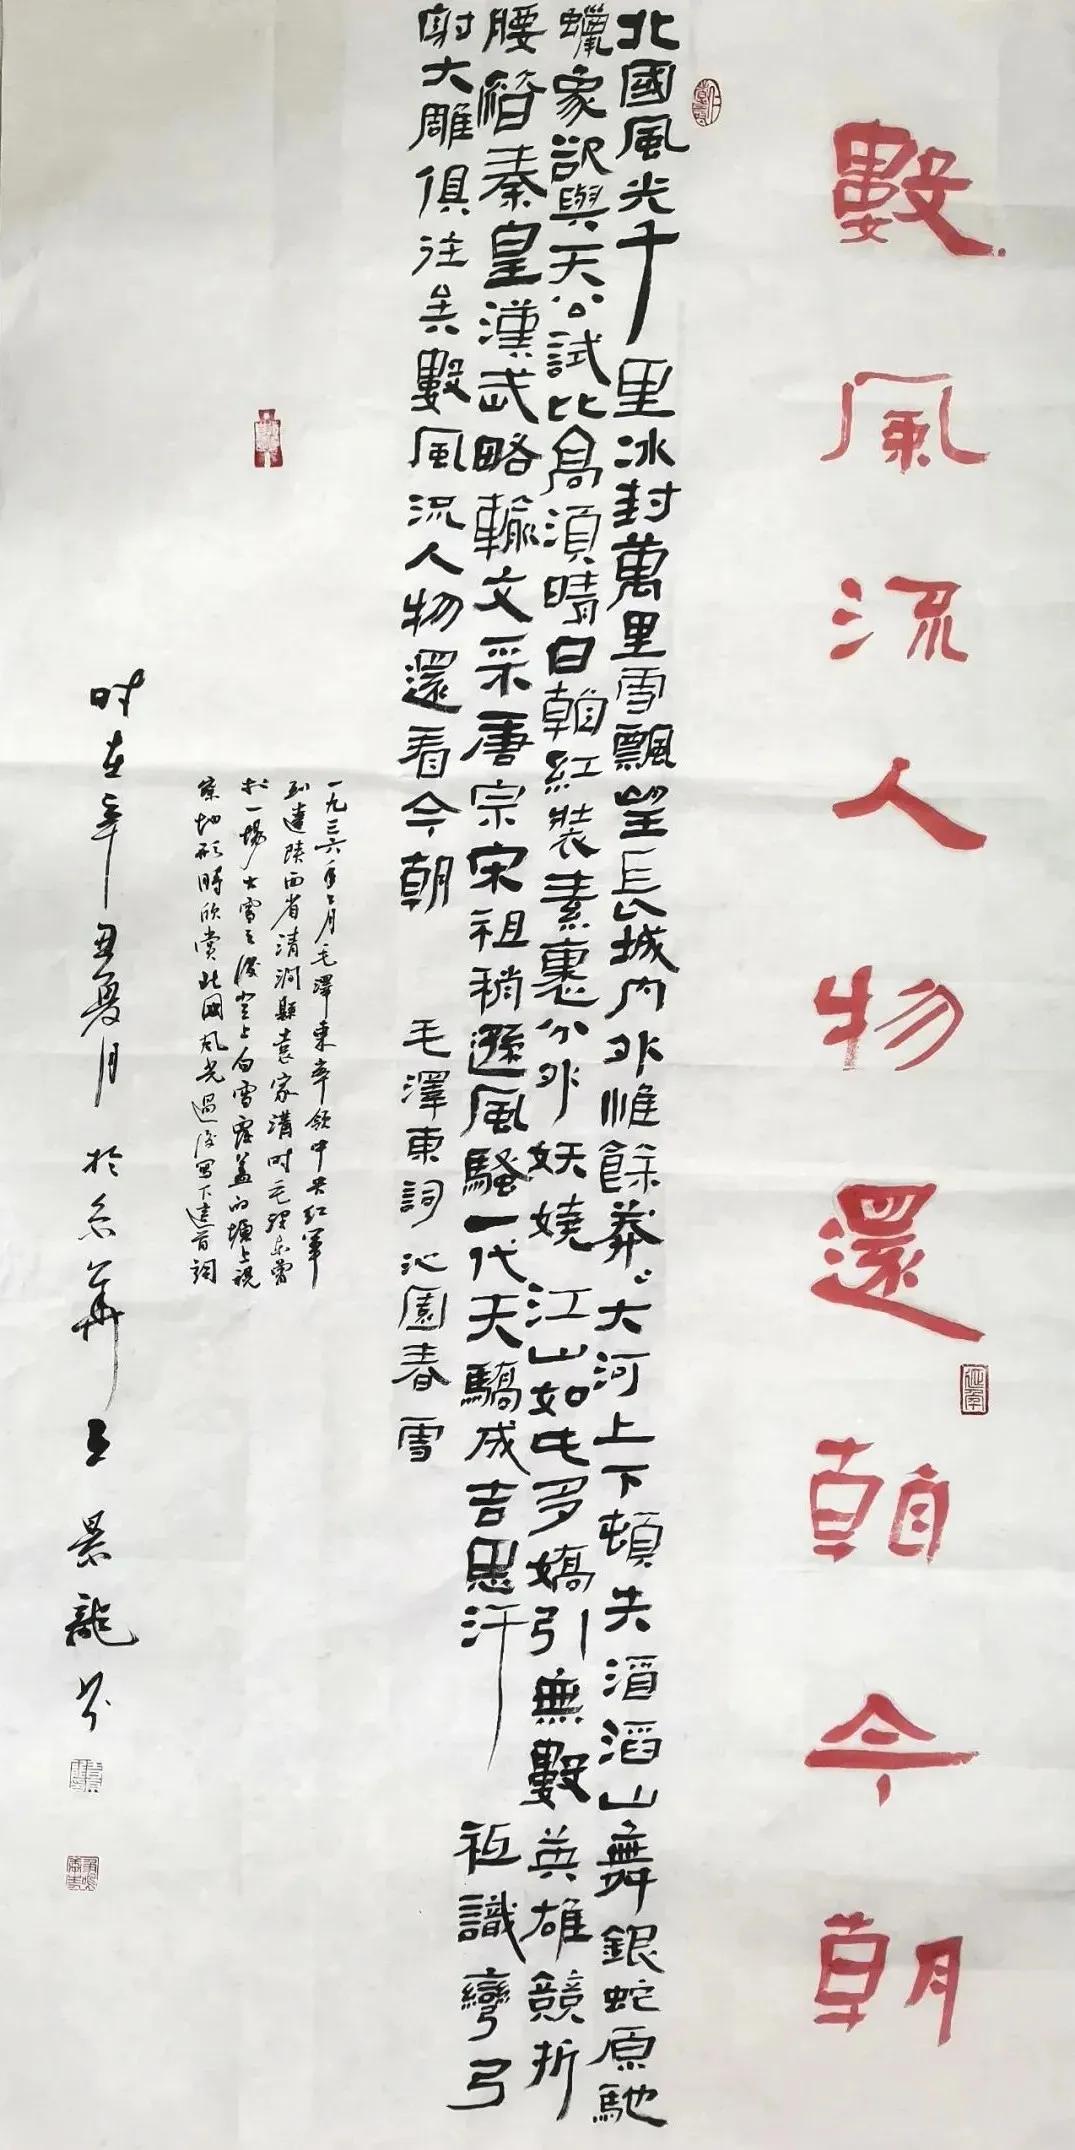 數風流人物還看今朝
北國風光千里冰封萬里雪飄望長城內外惟餘莽々大河上下頓失滔滔山舞銀蛇原馳
蠟象欲與天公試比高須晴日看紅裝素裹分外妖嬈江山如此多嬌引無數英雄競折
腰惜秦皇漢武略輸文采唐宗宋祖稍遜風騷一代天驕成吉思汗祗識彎弓
射大雕俱往矣數風流人物還看今朝 毛澤東詞沁園春雪
一九三六年二月毛澤東率領中央紅軍
到達陝西省清澗縣袁家溝时毛澤东曾
於一場大雪之後登上白雪覆蓋的塬上視
察地形時欣賞北國風光過後写下這首詞
时在辛丑夏月於京華王景龍书